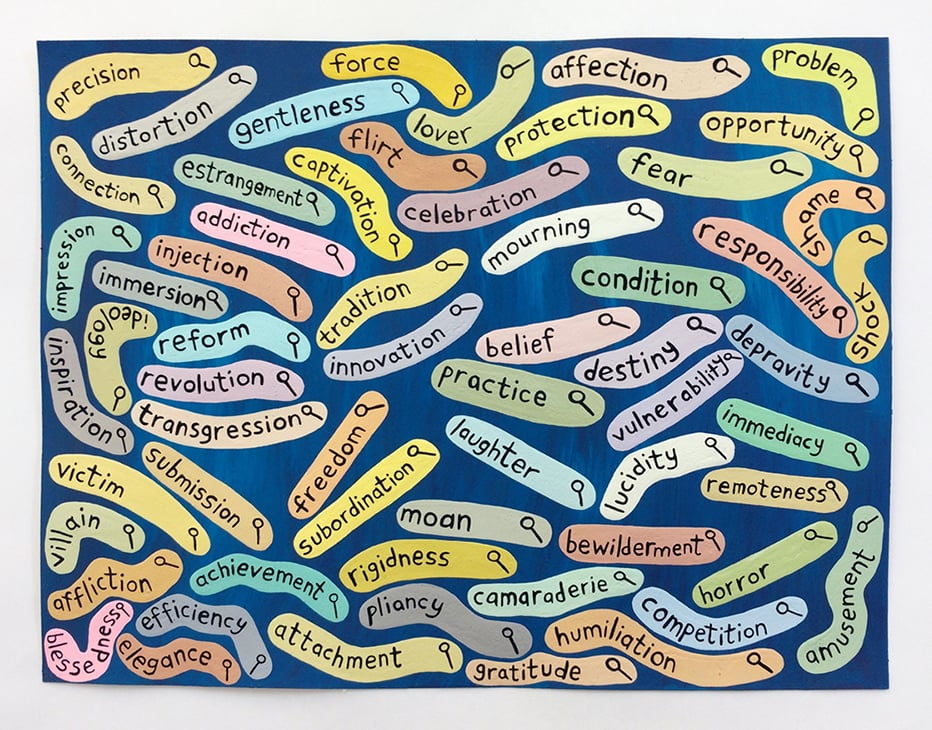 precision
force
affection
problem
distortion
gentleness
lover
protection
opportunity
connection
flirt
captivation
estrangement
fear
celebration
shame
addiction
mourning
responsibility
shock
impression
injection
immersion
tradition
condition
ideology
reform
innovation
belief
destiny
depravity
inspiration
revolution
practice
vulnerability
transgression
freedom
laughter
immediacy
victim
submission
subordination
lucidity
remoteness
villain
moan
bewilderment
affliction
achievement
rigidness
camaraderie
horror
amusement
blessedness
efficiency
pliancy
competition
elegance
attachment
humiliation
gratitude